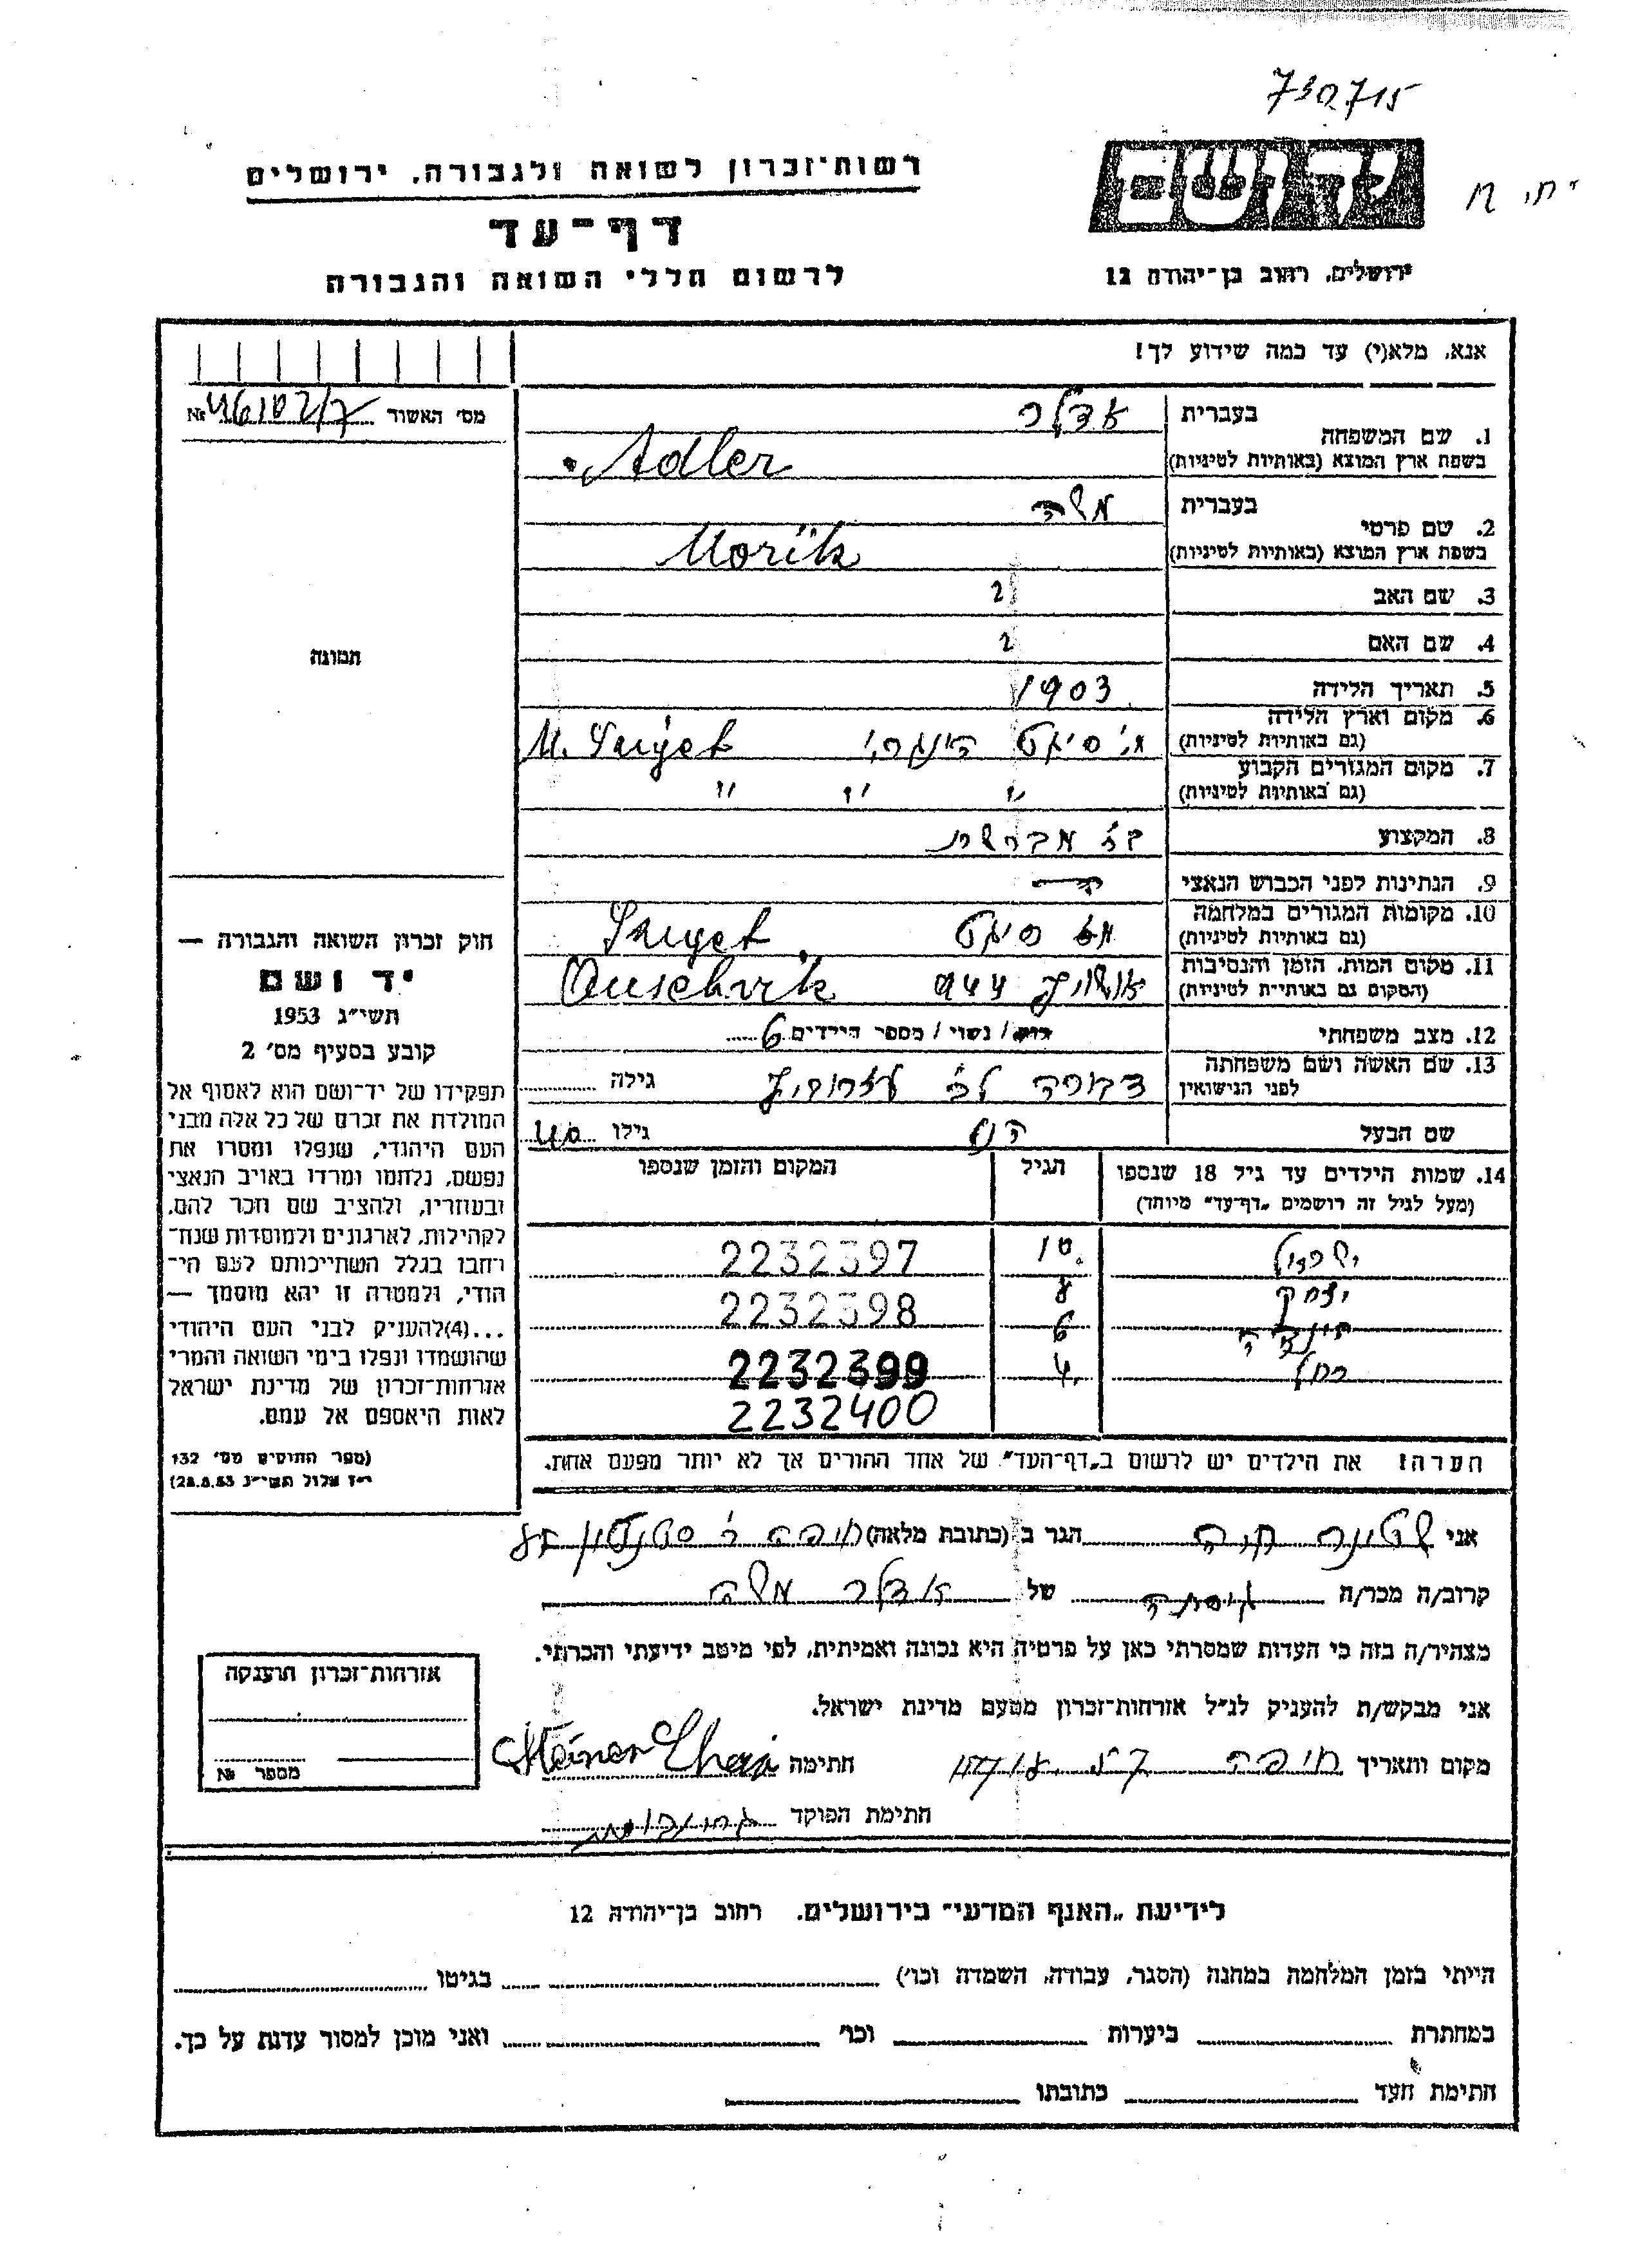 730715
רשות־זכרון לשואה ולגבורה, ירושלים
יד ושם
דף־עד
לרשום חללי השואה והגבורה
ירושלים, רחוב בן־יהודה 12
אנא, מלא(י) עד כמה שידוע לך!
מס׳ האשור № 46102/7
1. שם המשפחה בעברית אדלר
בשפת ארץ המוצא (באותיות לטיניות) Adler
2. שם פרטי בעברית משה
בשפת ארץ המוצא (באותיות לטיניות) Morik
3. שם האב
4. שם האם
תמונה
5. תאריך הלידה 1903
6. מקום וארץ הלידה (גם באותיות לטיניות) מ. סיגט M. Sziget
7. מקום המגורים הקבוע (גם באותיות לטיניות) " " "
8. המקצוע
9. הנתינות לפני הכבוש הנאצי
10. מקומות המגורים במלחמה (גם באותיות לטיניות) סיגט Sziget
11. מקום המות, הזמן והנסיבות (המקום גם באותיות לטיניות) אושויץ 944 Auschvitz
12. מצב משפחתי רווק / נשוי / מספר הילדים 6
13. שם האשה ושם משפחתה לפני הנישואין דבורה לבית גילה
שם הבעל גילו
14. שמות הילדים עד גיל 18 שנספו הגיל המקום והזמן שנספו
(מעל לגיל זה רושמים „דף־עד״ מיוחד)
ישראל 10 2232397
יצחק 8 2232398
6 2232399
רחל 4 2232400
הערה! את הילדים יש לרשום ב„דף־העד״ של אחד ההורים אך לא יותר מפעם אחת.
חוק זכרון השואה והגבורה —
יד ושם
תשי״ג 1953
קובע בסעיף מס׳ 2
תפקידו של יד־ושם הוא לאסוף אל
המולדת את זכרם של כל אלה מבני
העם היהודי, שנפלו ומסרו את
נפשם, נלחמו ומרדו באויב הנאצי
ובעוזריו, ולהציב שם וזכר להם,
לקהילות, לארגונים ולמוסדות שנח־
רבו בגלל השתייכותם לעם הי־
הודי, ולמטרה זו יהא מוסמך —
...(4)להעניק לבני העם היהודי
שהושמדו ונפלו בימי השואה והמרי
אזרחות־זכרון של מדינת ישראל
לאות היאספם אל עמם.
(ספר החוקים מס׳ 132
י״ז אלול תשי״ג 28.8.53)
אני שטינר חיה הגר ב (כתובת מלאה) חיפה
קרוב/ה מכר/ה גיסתה של אדלר משה
מצהיר/ה בזה כי העדות שמסרתי כאן על פרטיה היא נכונה ואמיתית, לפי מיטב ידיעתי והכרתי.
אני מבקש/ת להעניק לנ״ל אזרחות־זכרון מטעם מדינת ישראל.
מקום ותאריך חיפה חתימה Steiner Chaja
חתימת הפוקד
אזרחות־זכרון הוענקה
מספר №
לידיעת „האנף המדעי״ בירושלים, רחוב בן־יהודה 12
הייתי בזמן המלחמה במחנה (הסגר, עבודה, השמדה וכו׳) בגיטו
במחתרת ביערות וכו׳ ואני מוכן למסור עדות על כך.
חתימת העד כתובתו